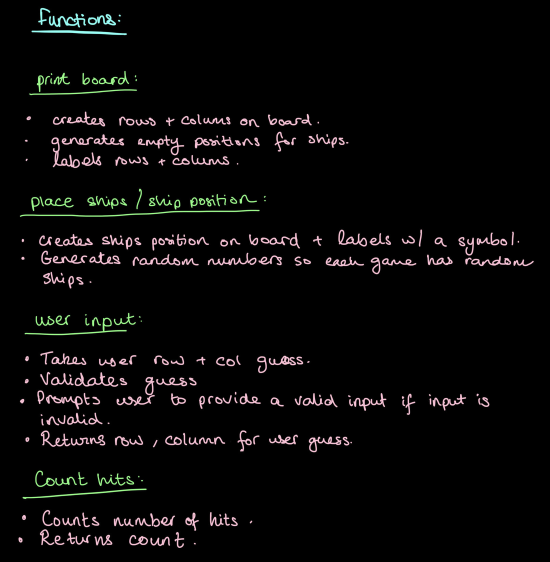 Functions:
print board:
• creates rows + colums on board.
• generates empty positions for ships.
• labels rows + colums.
place ships / ship position:
• creates ships position on board + labels w/ a symbol.
• Generates random numbers so each game has random
ships.
user input:
• Takes user row + col guess.
• Validates guess
• Prompts user to provide a valid input if input is
invalid.
• Returns row, column for user guess.
Count hits:
• Counts number of hits.
• Returns count.